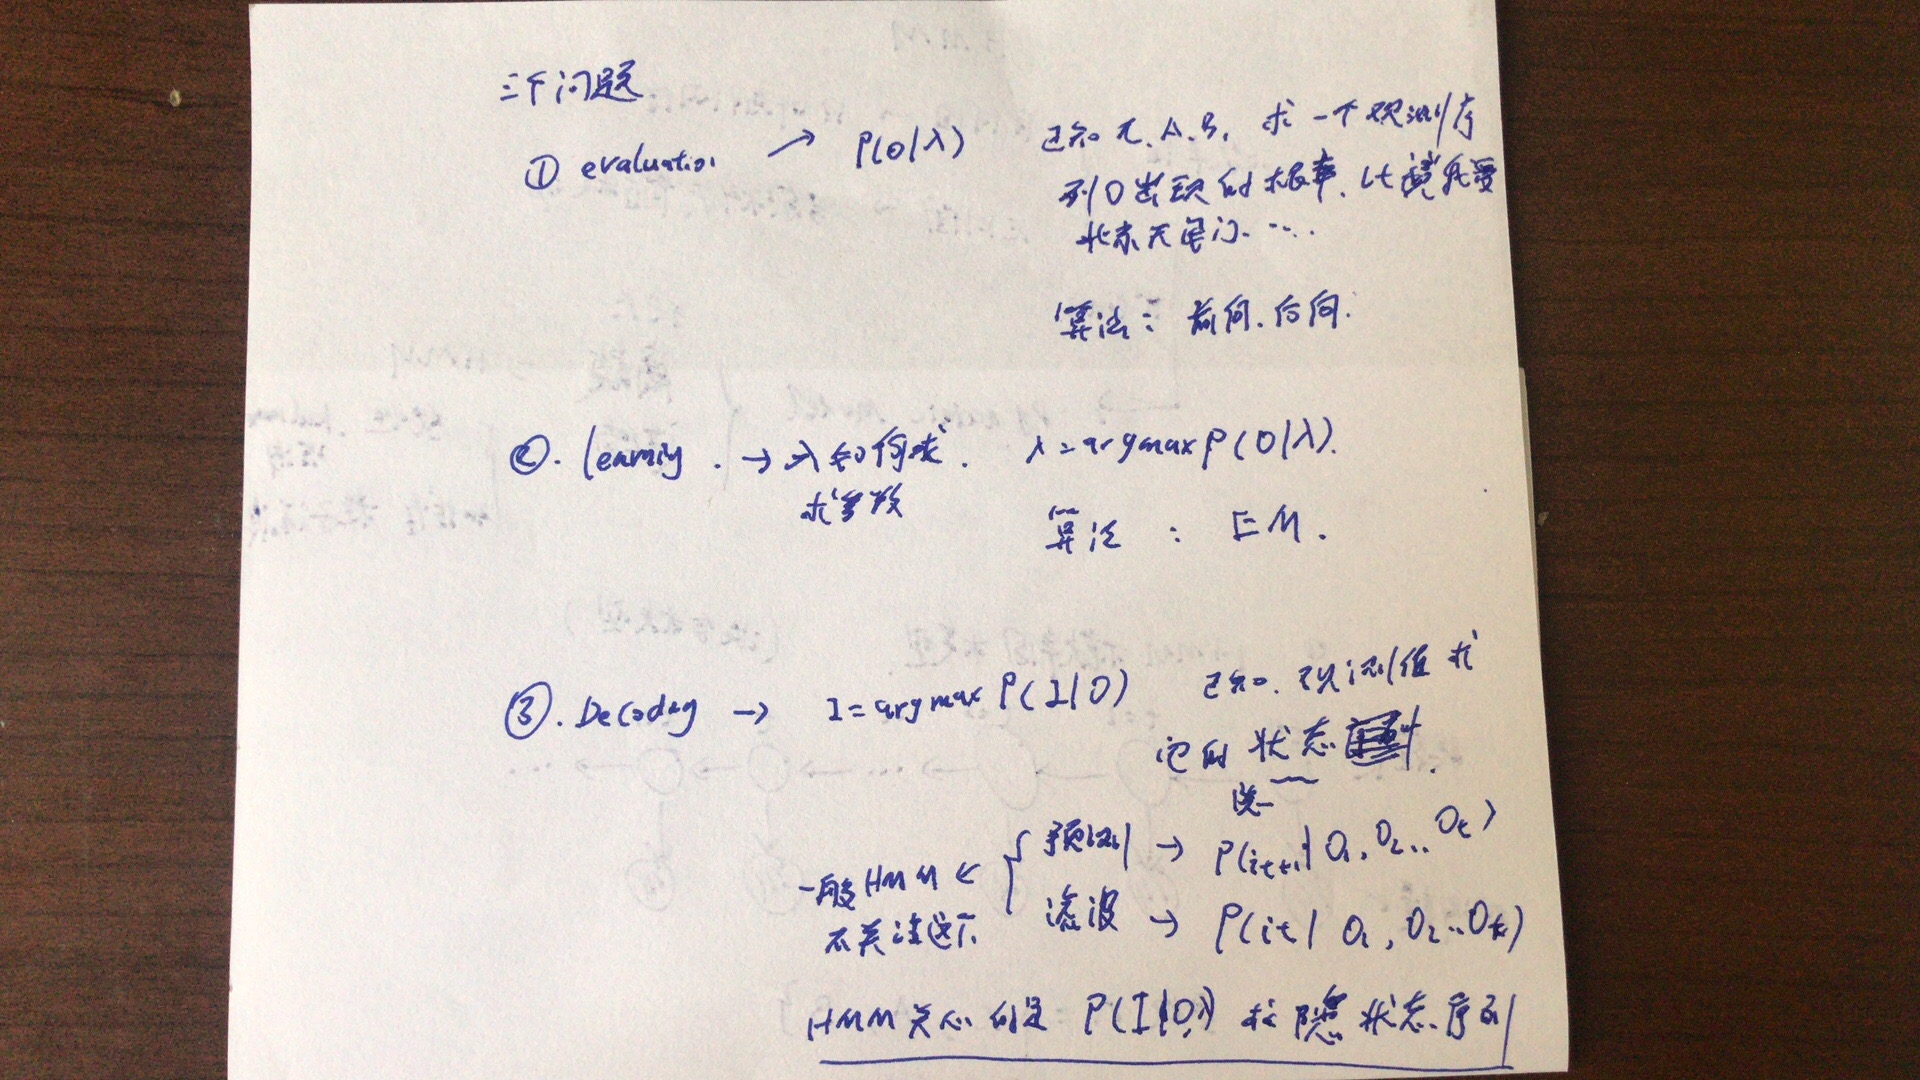 三个问题
① evaluation → P(O|λ) 已知 π.A.B, 求一个观测序
列O出现的概率. 比 我爱
北京天安门.....
算法: 前向.后向.
②. learning. → λ如何求. λ=argmax P(O|λ).
求参数
算法 : EM.
③. Decoding → I=argmax P(I|O) 已知.观测值求
它的状态
预测 → P(it+1| O1, O2.. Ot)
一般HMM ←
滤波 → P(it| O1, O2..Ot)
不关注这个
HMM关心的是 P(I|O,λ) 求隐状态序列